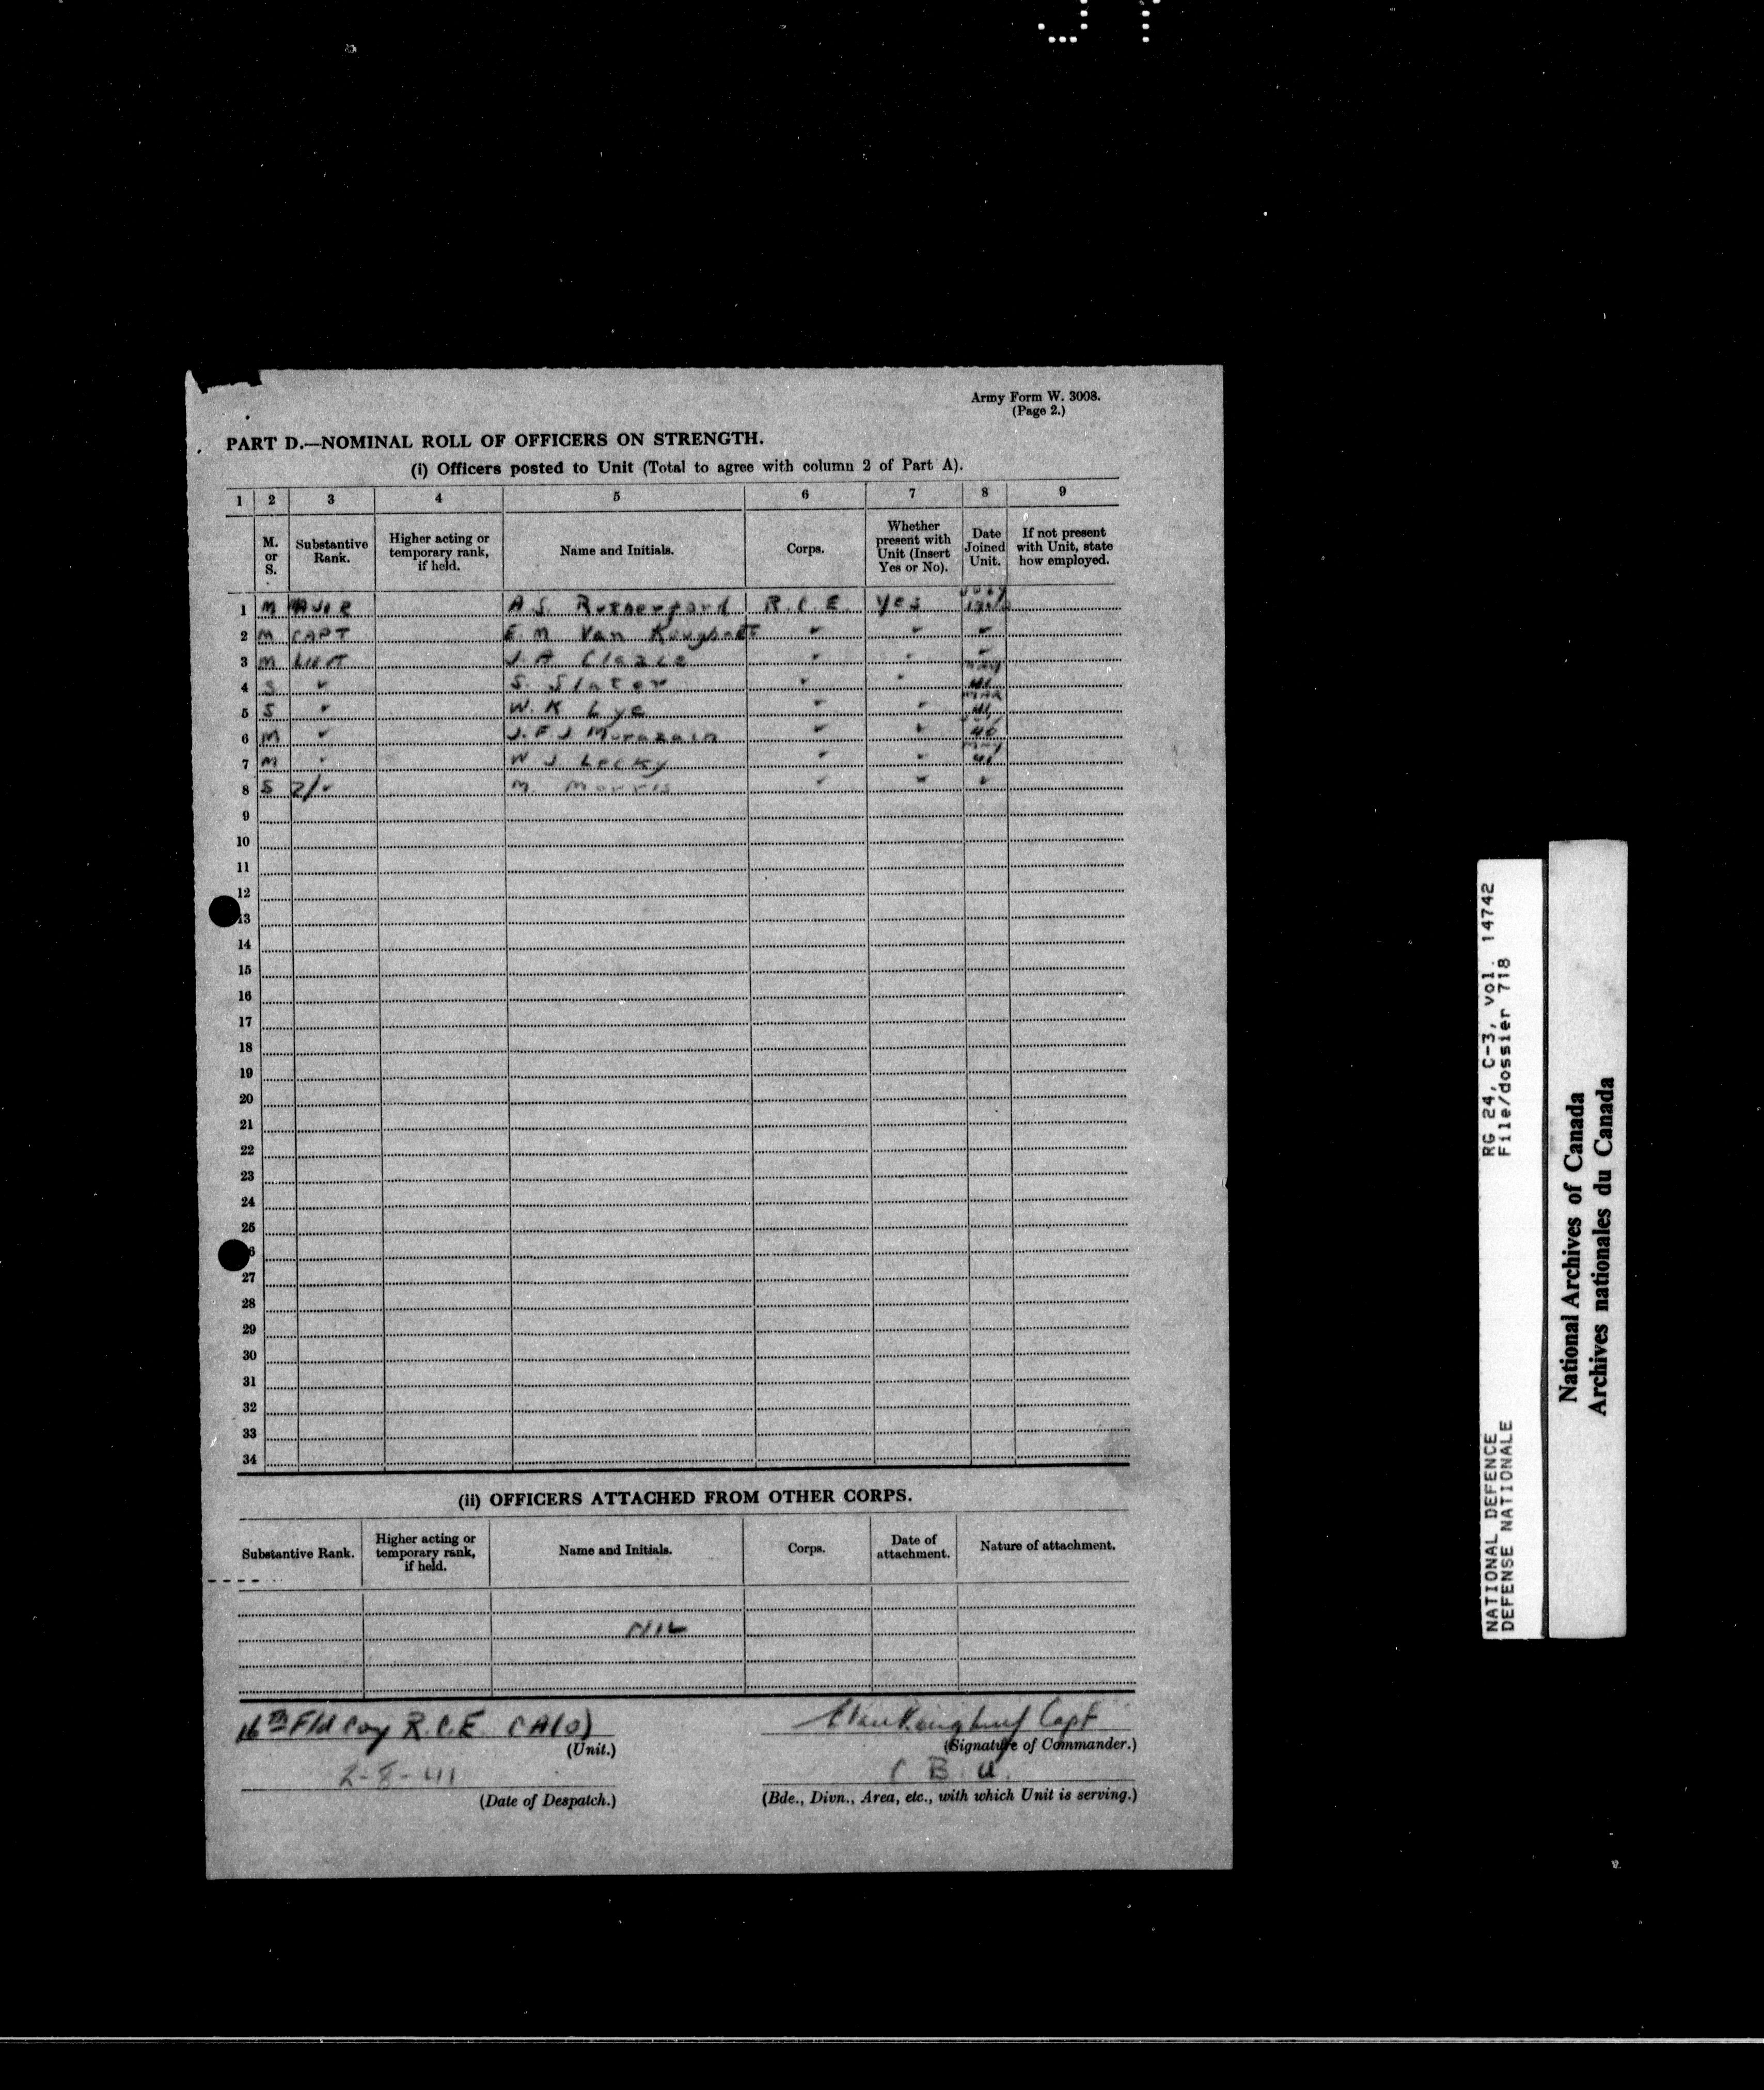 Army Form W. 3008.
(Page 2.)
PART D.—NOMINAL ROLL OF OFFICERS ON STRENGTH.
(i) Officers posted to Unit (Total to agree with column 2 of Part A).
1 2 3 4 5 6 7 8 9
M. or S. Substantive Rank. Higher acting or temporary rank, if held. Name and Initials. Corps. Whether present with Unit (Insert Yes or No). Date Joined Unit. If not present with Unit, state how employed.
1 M A S Rutherford R.C.E. Yes
2 M CAPT E M Van
3 M J A
4 S " S. Slater " "
5 S " W. K Lye " " MAR 41
6 M " J. F. J " " 40
7 M " W J Lecky " " MAY 41
8 S 2/" M. Morris " " "
9
10
11
12
13
14
15
16
17
18
19
20
21
22
23
24
25
27
28
29
30
31
32
33
34
(ii) OFFICERS ATTACHED FROM OTHER CORPS.
Substantive Rank. Higher acting or temporary rank, if held. Name and Initials. Corps. Date of attachment. Nature of attachment.
NIL
16th Fld Coy R.C.E. Capt
(Unit.) (Signature of Commander.)
2-8-41
(Date of Despatch.) (Bde., Divn., Area, etc., with which Unit is serving.)
RG 24, C-3, vol. 14742
File/dossier 718
NATIONAL DEFENCE
DEFENSE NATIONALE
National Archives of Canada
Archives nationales du Canada